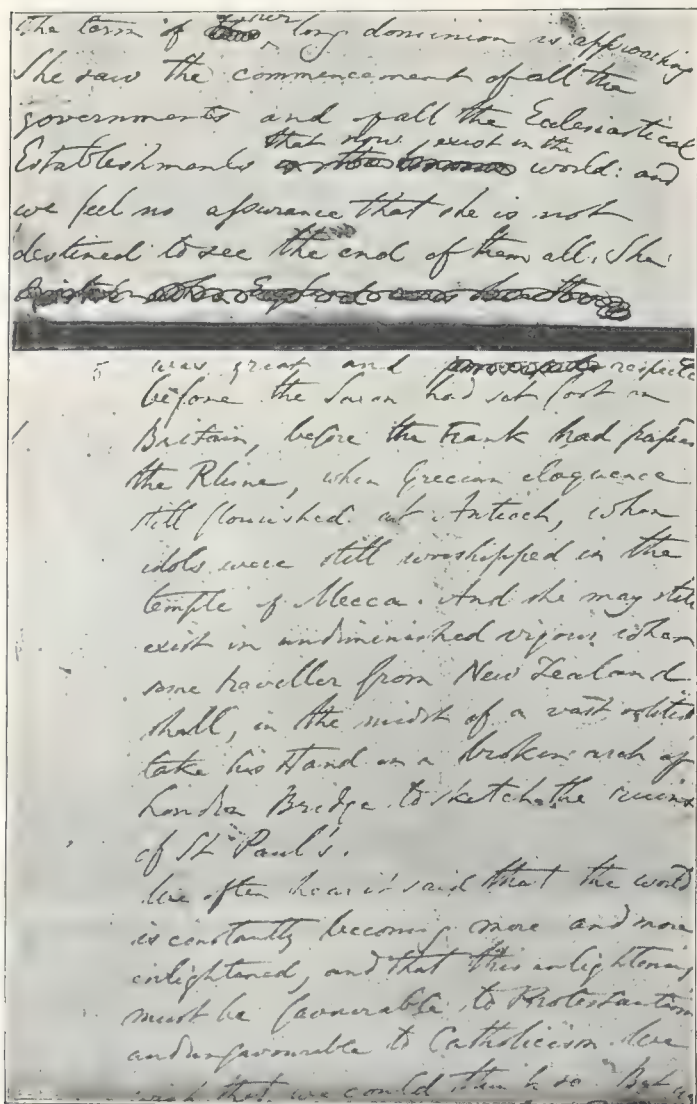 The term of her long dominion is approaching
She saw the commencement of all the
governments and of all the Ecclesiastical
that now exist in the
Establishments world: and
we feel no assurance that she is not
destined to see the end of them all. She
5 was great and respected
before the Saxon had set foot on
Britain, before the Frank had passed
the Rhine, when Grecian eloquence
still flourished at Antioch, when
idols were still worshipped in the
temple of Mecca. And she may still
exist in undiminished vigour when
some traveller from New Zealand
shall, in the midst of a vast solitude
take his stand on a broken arch of
London Bridge to sketch the ruins
of St Paul's.
We often hear it said that the world
is constantly becoming more and more
enlightened, and that this enlightening
must be favourable to Protestantism
and unfavourable to Catholicism. We
wish that we could think so. But we